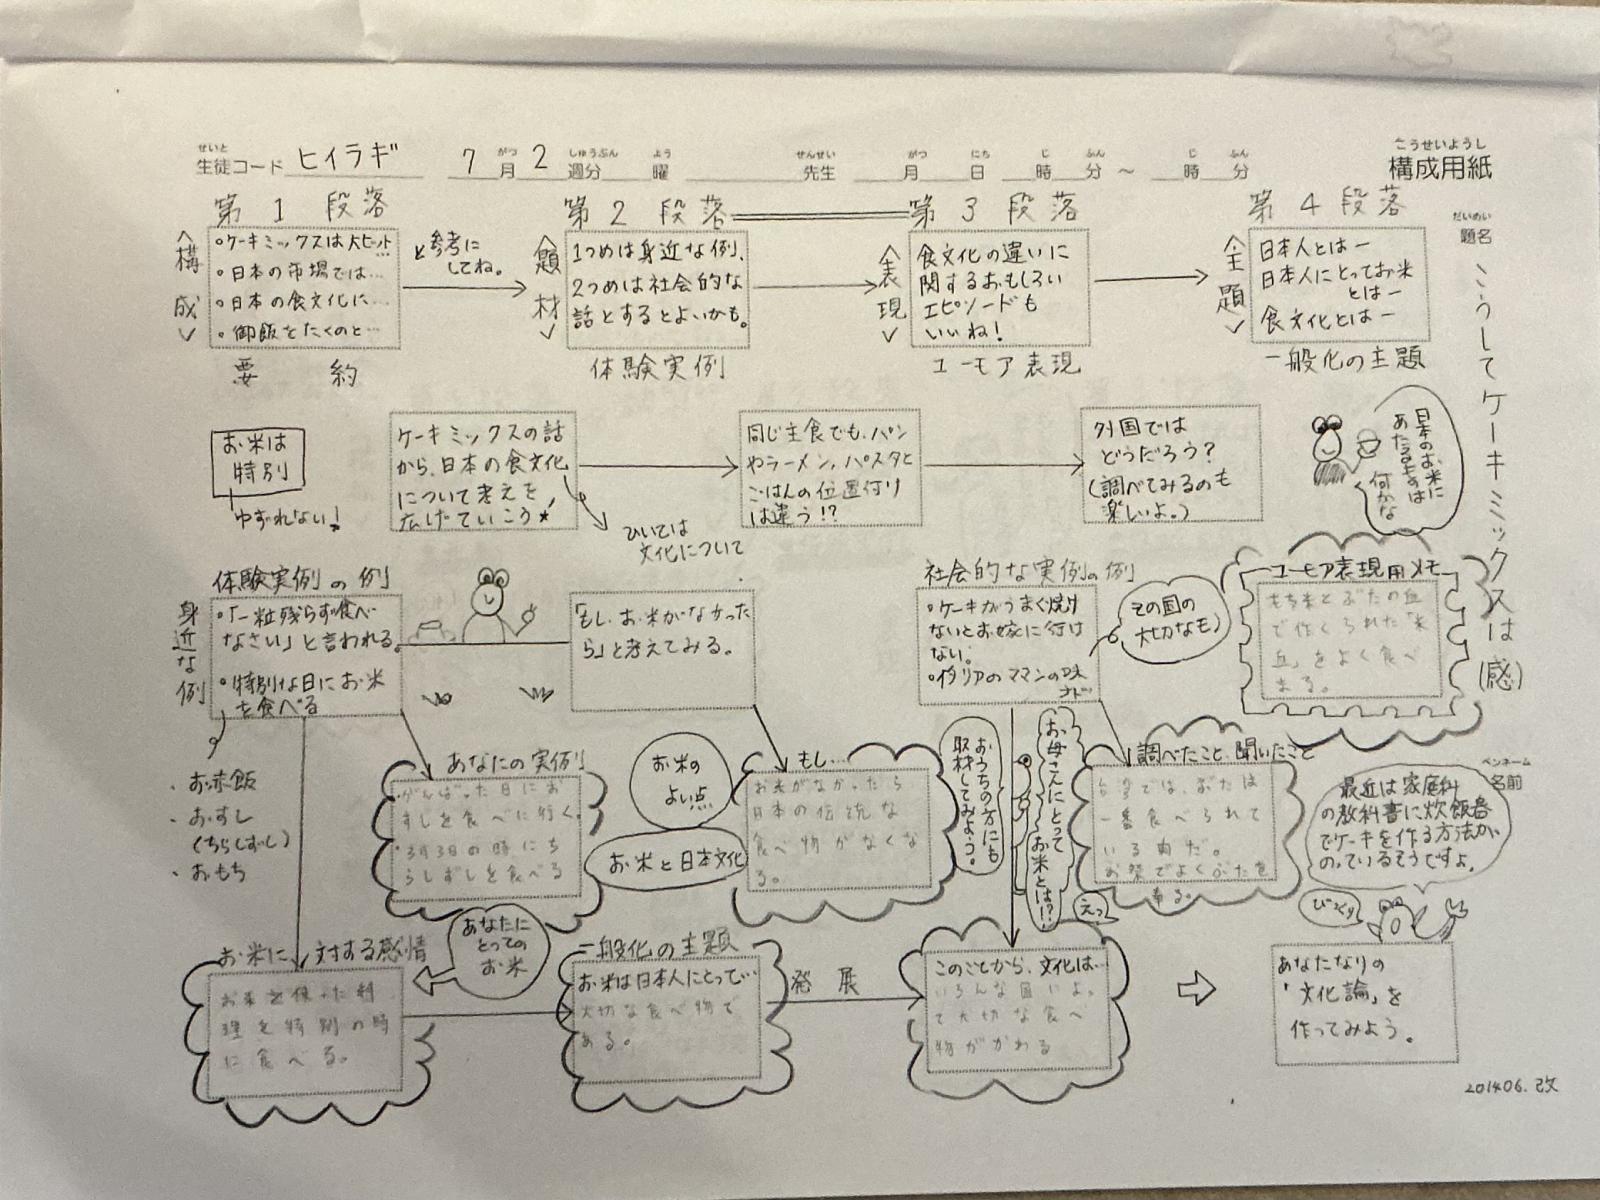 せいと
生徒コード ヒイラギ 7月 2週分 曜 先生 月 日 時 分 ～ 時 分
がつ しゅうぶん よう せんせい がつ にち じ ふん じ ふん
こうせいようし
構成用紙
だいめい
題名
こうしてケーキミックスは(感)
第1段落
第2段落
第3段落
第4段落
<構成>
・ケーキミックスは大ヒット…
・日本の市場では…
・日本の食文化に…
・御飯をたくのと…
要約
と参考に
してね。
<題材>
1つめは身近な例、
2つめは社会的な
話とするとよいかも。
体験実例
<表現>
食文化の違いに
関するおもしろい
エピソードも
いいね!
ユーモア表現
<主題>
日本人とはー
日本人にとってお米
とはー
食文化とはー
一般化の主題
お米は
特別
ゆずれない!
ケーキミックスの話
から、日本の食文化
について考えを
広げていこう★
ひいては
文化について
同じ主食でも、パン
やラーメン、パスタと
ごはんの位置付け
は違う!?
外国では
どうだろう?
(調べてみるのも
楽しいよ。)
日本のお米に
あたるものは
何かな
身近な例
体験実例の例
・「一粒残らず食べ
なさい」と言われる。
・特別な日にお米
を食べる
・お赤飯
・おすし
(ちらしずし)
・おもち
「もし、お米がなかった
ら」と考えてみる。
社会的な実例の例
・ケーキがうまく焼け
ないとお嫁に行け
ない。
・イタリアのママンの味
など
その国の
大切なもの
ユーモア表現用メモ
もち米とぶたの血
で作くられた「米
血」をよく食べ
まる。
あなたの実例
・がんばった日にお
すしを食べに行く。
・3月3日の時にち
らしずしを食べる
お米の
よい点
お米と日本文化
もし…
お米がなかったら
日本の伝統な
食べ物がなくな
る。
おうちの方にも
取材してみよう。
お母さんにとって
お米とは!?
えっ
調べたこと、聞いたこと
台湾では、ぶたは
一番食べられて
いる肉だ。
お祭でよくぶたを
奉る。
ペンネーム
名前
最近は家庭科
の教科書に炊飯器
でケーキを作る方法が
のっているそうですよ。
びっくり
お米に対する感情
お米を使った料
理を特別の時
に食べる。
あなたに
とっての
お米
一般化の主題
お米は日本人にとって…
大切な食べ物で
ある。
発展
このことから、文化は…
いろんな国いよ。
て大切な食べ
物がかわる
あなたなりの
「文化論」を
作ってみよう。
201406.改